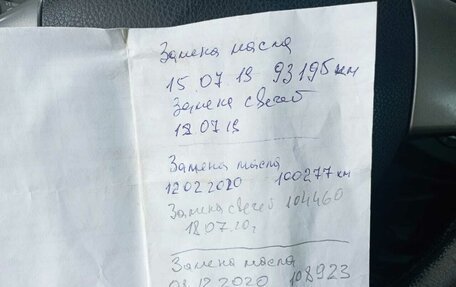 Замена масла
15.07.19 93195 км
Замена свечей
18.07.19
Замена масла
12.02.2020 100277 км
Замена свечей 104460
18.07.20г
Замена масла
08.12.2020 108923